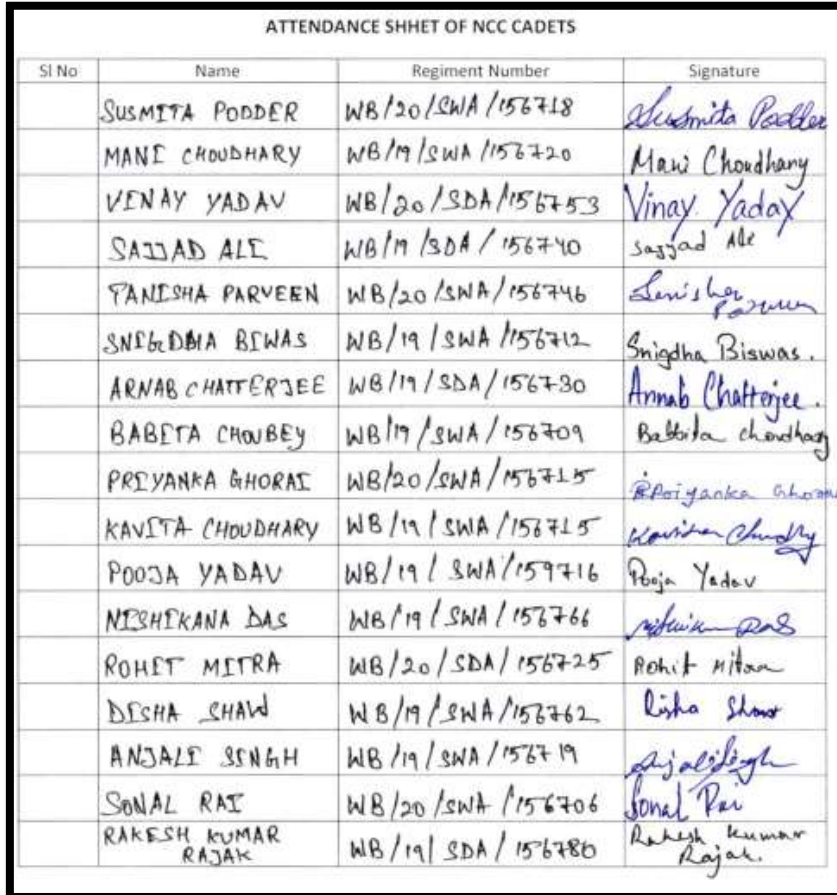 ATTENDANCE SHHET OF NCC CADETS
Sl No Name Regiment Number Signature
SUSMITA PODDER WB/20/SWA/156718 Susmita Podder
MANI CHOUDHARY WB/19/SWA/156720 Mani Choudhary
VINAY YADAV WB/20/SDA/156753 Vinay Yadav
SAJJAD ALI WB/19/SDA/156740 Sajjad Ali
TANISHA PARVEEN WB/20/SWA/156746
SNIGDHA BIWAS WB/19/SWA/156712 Snigdha Biswas.
ARNAB CHATTERJEE WB/19/SDA/156730 Arnab Chatterjee.
BABITA CHOUBEY WB/19/SWA/156709 Babbita choudhary
PRIYANKA GHORAI WB/20/SWA/156715 Priyanka Ghorai
KAVITA CHOUDHARY WB/19/SWA/156715
POOJA YADAV WB/19/SWA/159716 Pooja Yadav
NISHIKANA DAS WB/19/SWA/156766
ROHIT MITRA WB/20/SDA/156725 Rohit Mitra
DISHA SHAW WB/19/SWA/156762 Disha Shaw
ANJALI SINGH WB/19/SWA/156719 Anjali Singh
SONAL RAI WB/20/SWA/156706 Sonal Rai
RAKESH KUMAR RAJAK WB/19/SDA/156780 Rakesh Kumar Rajak.